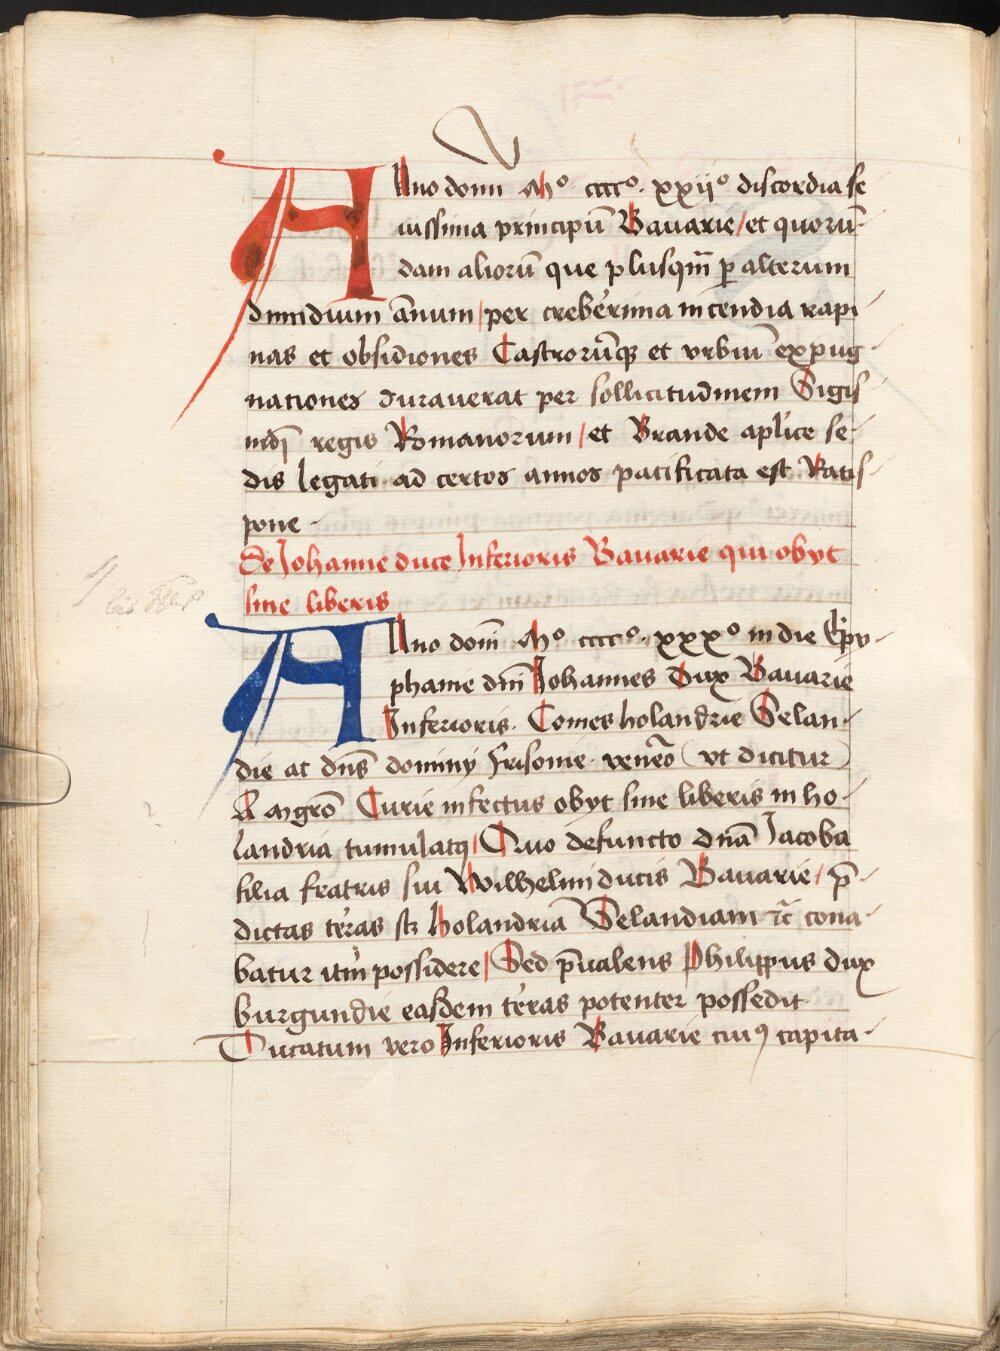 Anno domi Mº ccccº. xxijº discordia se
uissima principũ Bauarie / et quorũ-
dam aliorũ que plusqm̃ p alterum
dimidium ãnnum / per creberrima incendia rapi
nas et obsidiones Castrorũq; et vrbiũ expug
nationes durauerat per sollicitudinem Sigis
mdi regis Romanorum / et Brande aplice se-
dis legati ad certos annos pacificata est Ratis
pone -
De Johanne duce Inferioris Bauarie qui obyt
sine liberis
Anno domĩ Mº ccccº. xxxº in die Epy-
phanie dñi Johannes Dux Bauarie
Inferioris. Comes holandrie Selan-
die ac dñs dominy Frisonie. veneno (vt dicitur)
A mgrõ Curie infectus obyt sine liberis in ho-
landria tumulatq / Quo defuncto dña Jacoba
filia fratris sui Wilhelmi ducis Bauarie / p̃-
dictas teras sc; holandria Selandiam &c̃ cona-
batur itm̃ possidere / Sed p̃ualens Philippus dux
burgundie easdem teras potenter possedit.
Ducatum vero Inferioris Bauarie cuiꝰ capita-